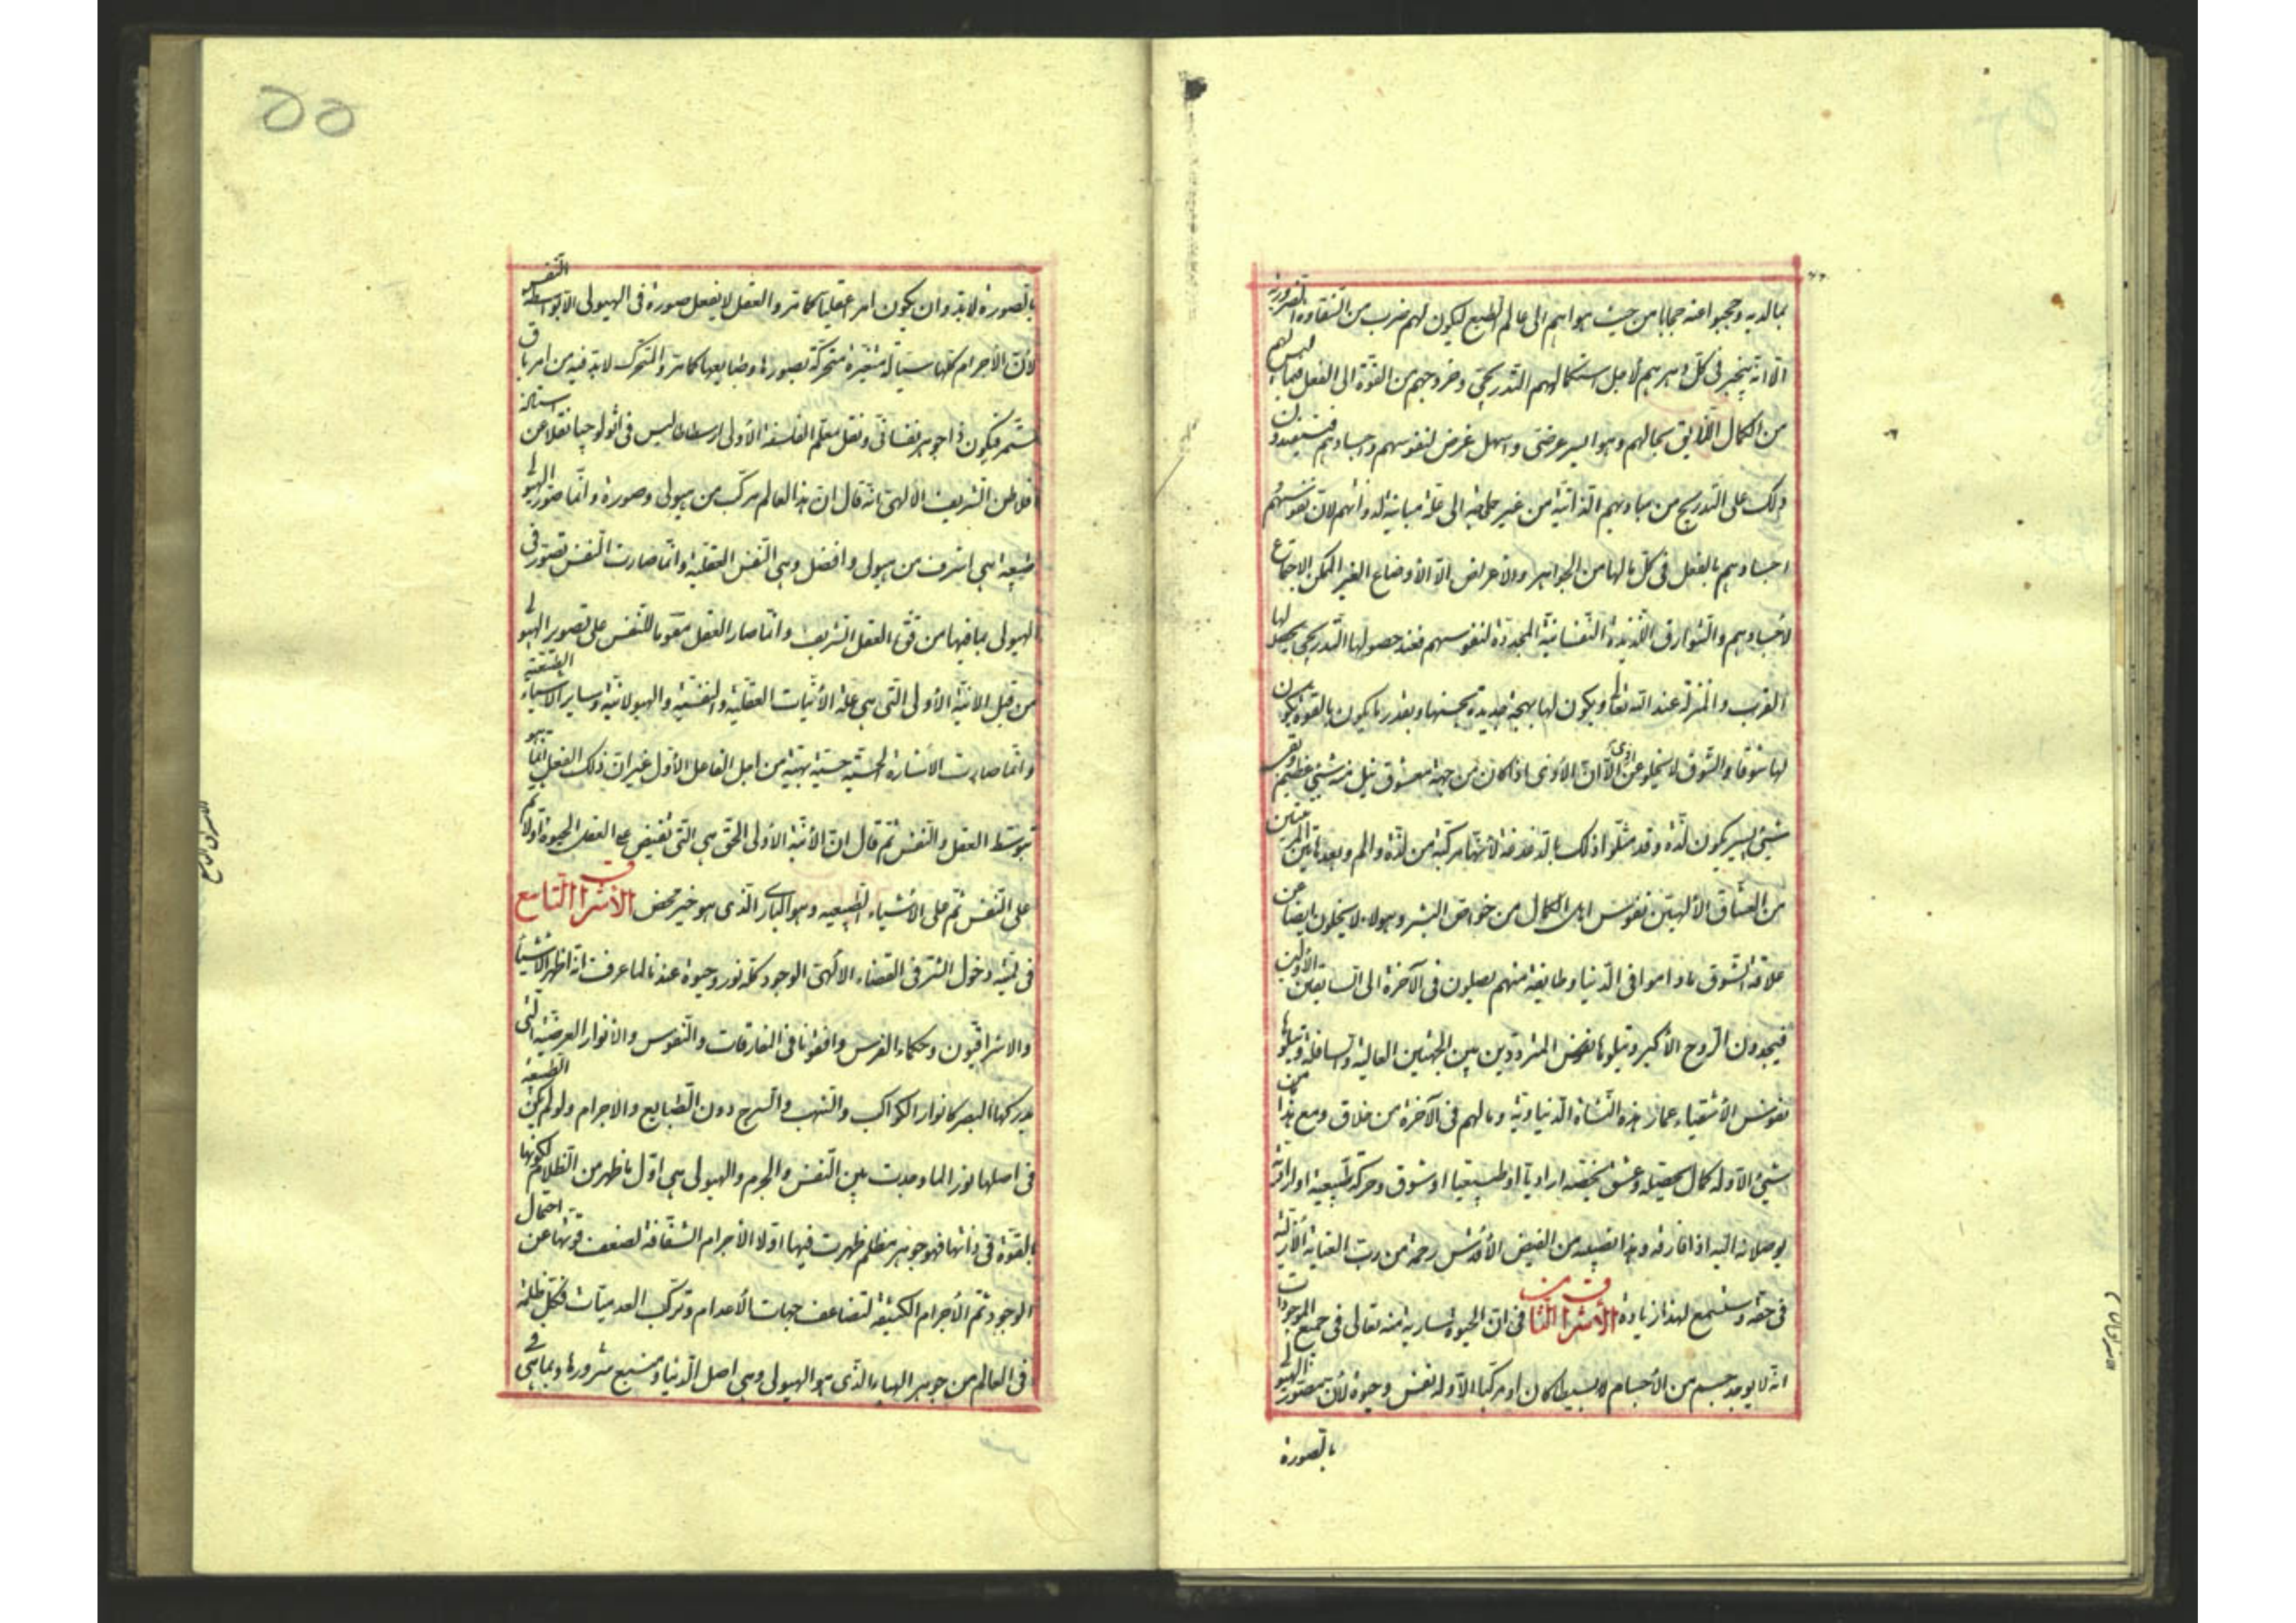 بما لديه وحجبوا عنه حجابا من حيث هواهم الى عالم الطبع ليكون لهم ضرب من الشقاوة الضرورية
الا انه ينجبر فى كل وهر بهم لاجل استكمالهم التدريجى وخروجهم من القوة الى الفعل فيما ليس لهم
من الكمال اللايق بحالهم وهو ايسر عرضى واسهل غرض لنفوسهم واجسادهم فيستفيدون
ذلك على التدريج من مباديهم الذاتية من غير حاجة الى علة مباينة لذواتهم لان نفوسهم
اجسادهم بالفعل فى كل ما لها من الجواهر والاعراض الا الاوضاع الغير الممكن الاجتماع
لاجسادهم والشوارق اللذيذة النفسانية المجددة لنفوسهم فعند حصولها التدريجى يحصل لها
القرب والمنزلة عند الله تعالى ويكون لها بهجة جديدة بحسبها وبقدر ما يكون بالقوة يكون
لها شوقا والشوق لا يخلو عن اذى الا ان الاذى اذا كان من جهة معشوق نيل منه شيئ عظيم وبقى
شيئ يسير يكون لذة وقد مثلوا ذلك بالدغدغة لانها مركبة من لذة والم وبعد هاتين المرتبتين
من العشاق الالهيين نفوس اهل الكمال من خواص البشر وهولاء لا يخلون ايضا عن
علاقة الشوق ما داموا فى الدنيا وطايفة منهم يصلون فى الآخرة الى السابقين الاولين
فيجدون الروح الاكبر ويتلوها نفوس المترددين بين الجهتين العالية والسافلة ويتلوها
نفوس الاشقياء عمار هذه النشاة الدنياوية وما لهم فى الآخرة من خلاق ومع هذا ما من
شيئ الا وله كمال يحصله وعشق يخصه اراديا او طبيعيا او شوق وحركة طبيعية او ارادية
يوصلانه اليه اذا فارقه وهذا نصيبه من الفيض الاقدس رحمة من رب العناية الازلية
فى حقه وستسمع لهذا زيادة الاشراق الثامن فى ان الحيوة سارية منه تعالى فى جميع الموجودات
انه لا يوجد جسم من الاجسام بسيطا كان او مركبا الا وله نفس وحيوة لان مصور الهيولى
بالصورة
بالصورة لابد وان يكون امرا عقليا كما مر والعقل لا يفعل صورة فى الهيولى الا بتوسط النفس
لان الاجرام كلها سيالة متغيرة متحركة بصورها وطبايعها كما مر والمتحرك لابد فيه من امر باق
مستمر فيكون ذا جوهر نفسانى ونقل معلم الفلسفة الاولى ارسطاطاليس فى اثولوجيا نقلا عن استاذه
افلاطن الشريف الالهى انه قال ان هذا العالم مركب من هيولى وصورة وانما صور الهيولى
طبيعة هى اشرف من هيولى وافضل وهى النفس العقلية وانما صارت النفس تصور فى
الهيولى بما فيها من قوة العقل الشريف وانما صار العقل مقويا للنفس على تصوير الهيولى
من قبل الانية الاولى التى هى علة الانيات العقلية والنفسية والهيولانية وساير الاشياء الطبيعية
وانما صارت الاشارة الحسية حسنة بهية من اجل الفاعل الاول غير ان ذلك الفعل انما هو
بتوسط العقل والنفس ثم قال ان الانية الاولى الحق هى التى تفيض على العقل الحيوة اولا ثم
على النفس ثم على الاشياء الطبيعيه وهو البارى الذى هو خير محض الاشراق التاسع
فى لمية دخول الشر فى القضاء الالهى الوجود كله نور وحيوة عندنا لما عرفت انه اظهر الاشياء
والاشراقيون وحكماء الفرس وافقونا فى المفارقات والنفوس والانوار العرضية التى
يدركها البصر كانوار الكواكب والشهب والسرج دون الطبايع والاجرام ولو لم تكن الطبيعة
فى اصلها نورا لما وجدت بين النفس والجرم والهيولى هى اول ما ظهر من الظلام لكونها
بالقوة فى ذاتها فهو جوهر مظلم ظهرت فيها اولا الاجرام الشفافة لضعف قوتها عن احتمال
الوجود ثم الاجرام الكثيفة لتضاعف جهات الاعدام وتركب العدميات فكل ظلمة
فى العالم من جوهر الهباء الذى هو الهيولى وهى اصل الدنيا ومنبع شرورها وبما هى فى